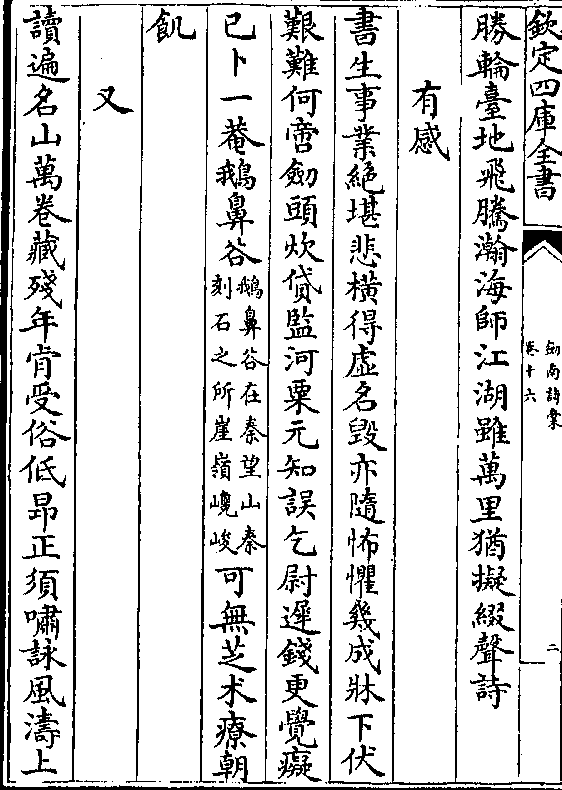 欽定四庫全書
劒南詩藁
卷十六
二
勝輪臺地飛騰瀚海師江湖雖萬里猶擬綴聲詩
有感
書生事業絶堪悲橫得虛名毀亦隨怖懼幾成牀下伏
艱難何啻劒頭炊貸監河粟元知誤乞尉遲錢更覺癡
已卜一菴鵝鼻谷
鵝鼻谷在秦望山秦
刻石之所崖嶺巉峻
可無芝术療朝
飢
又
讀遍名山萬卷藏殘年肯受俗低昂正須嘯詠風濤上